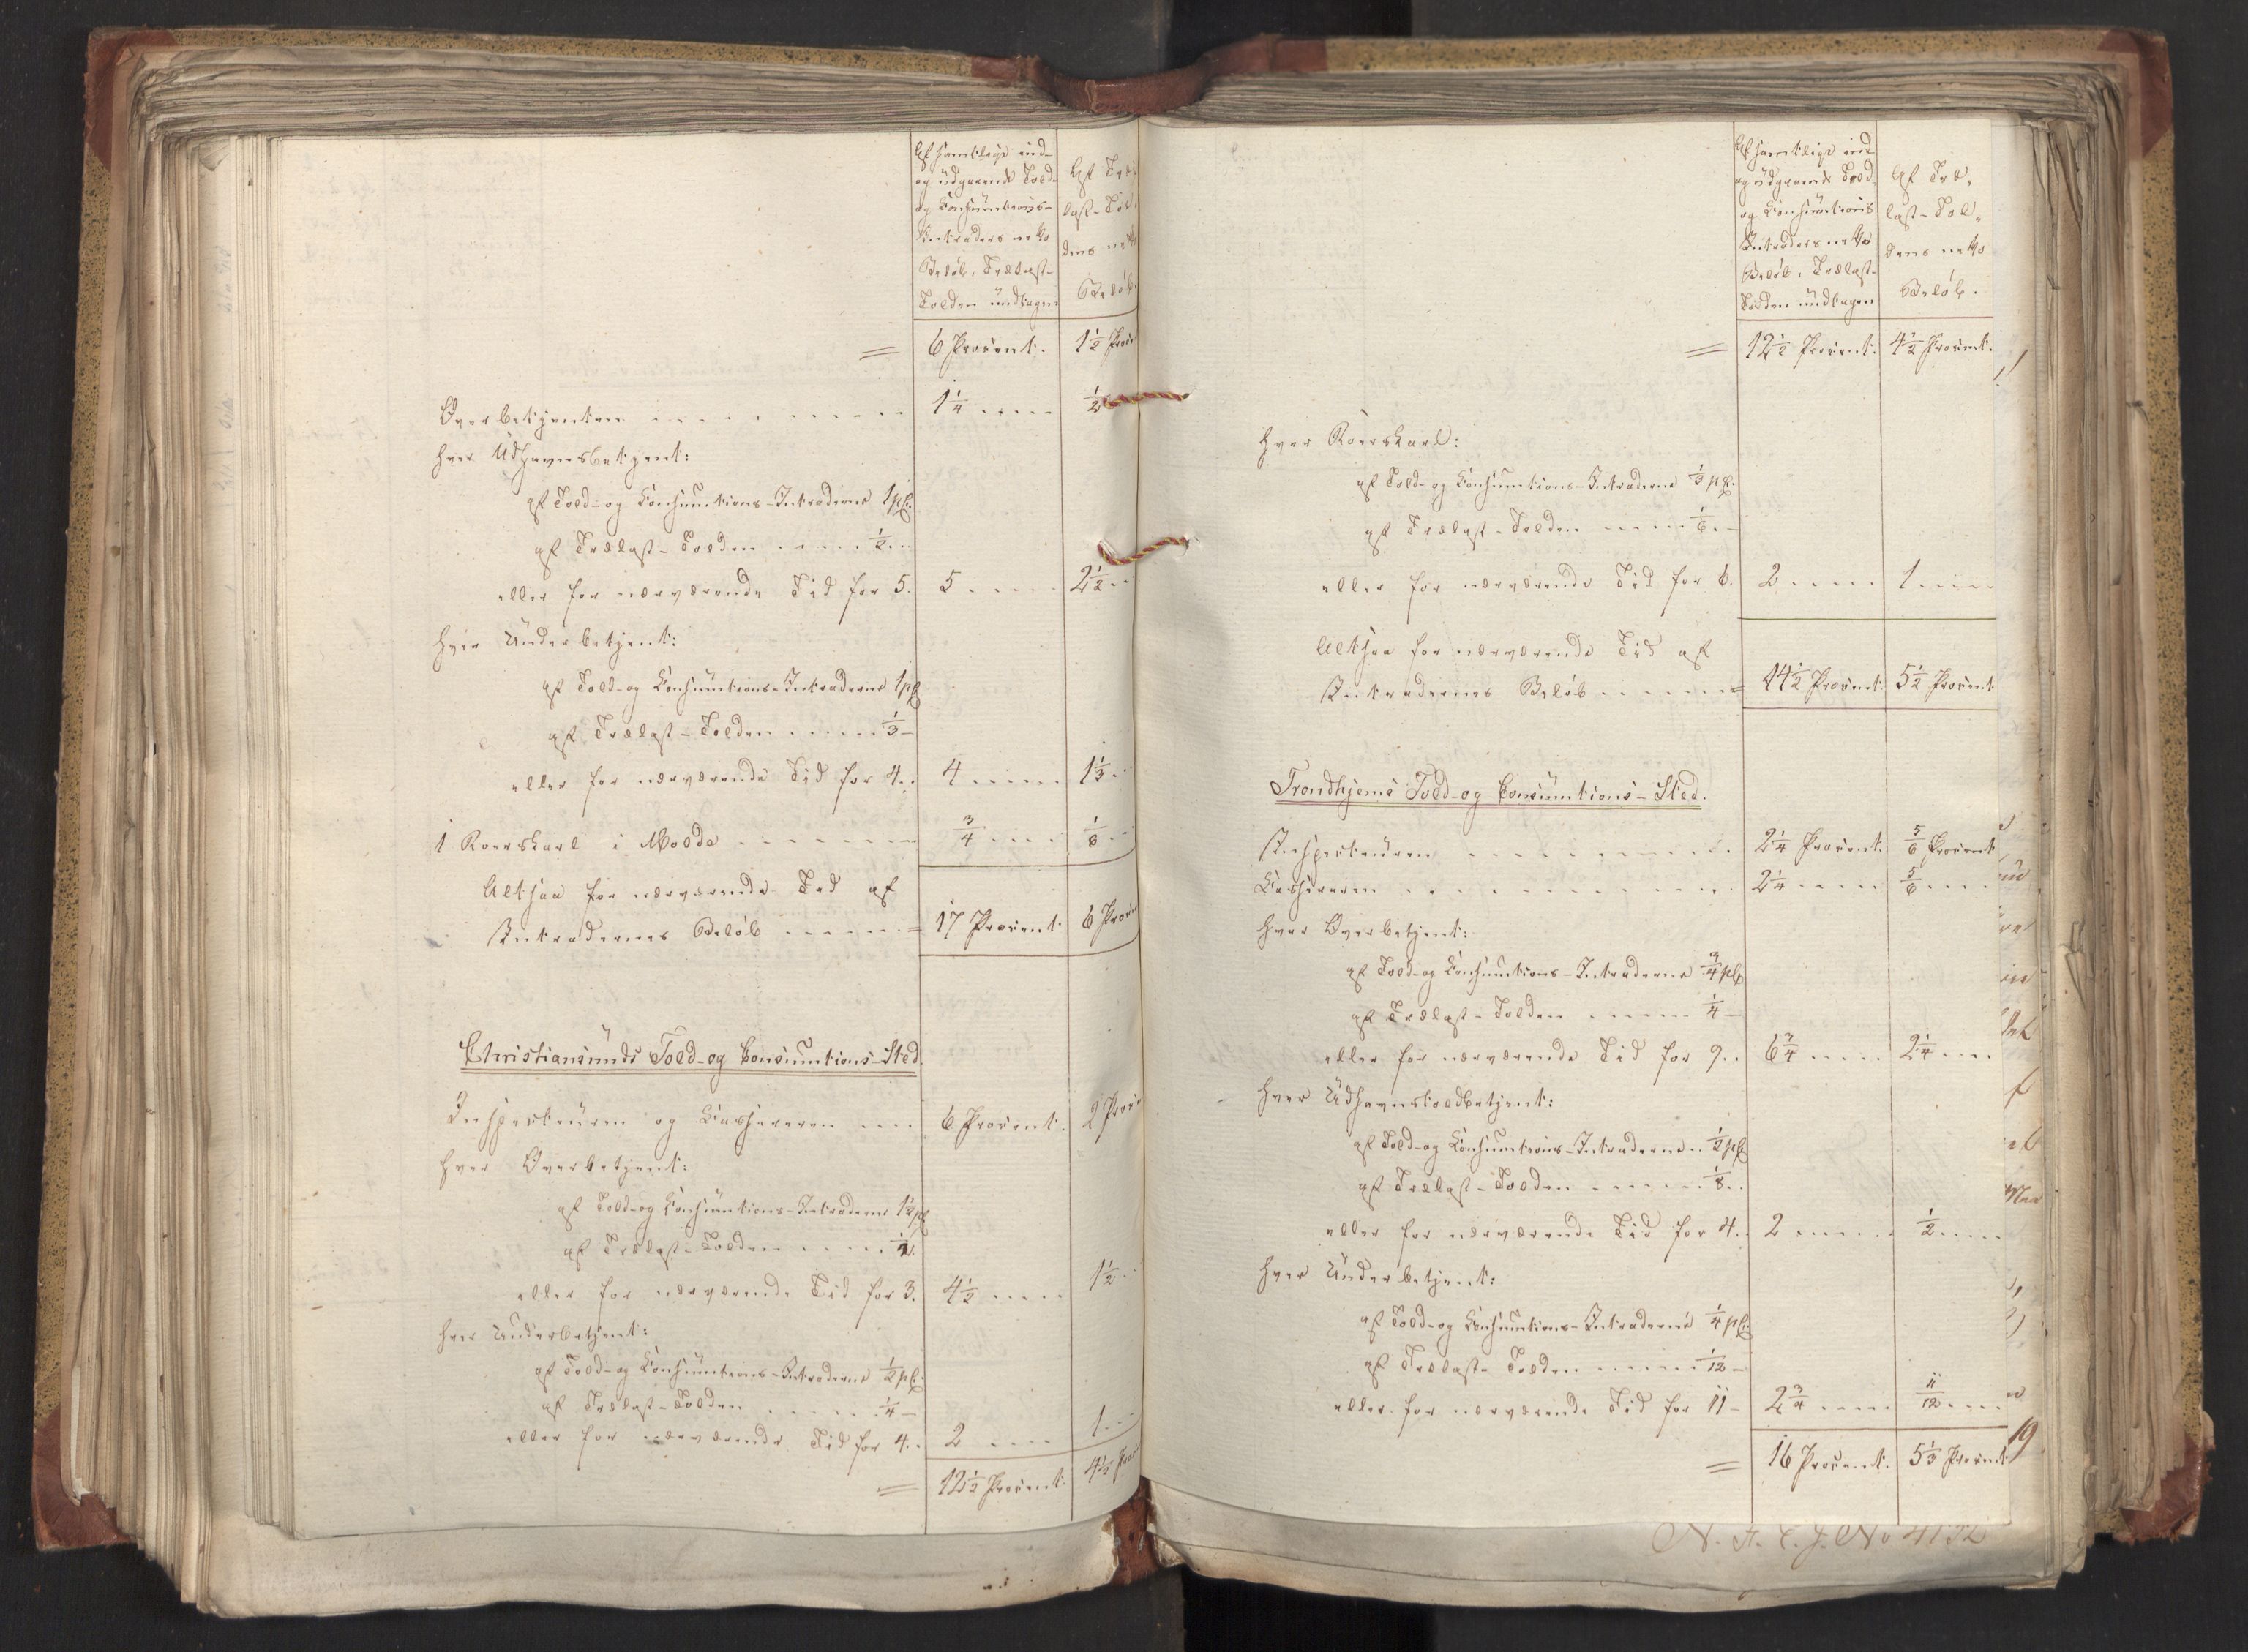 Af samtlige ind-
og udgaaende Told-
og Consumtions-
Intraders netto
Beløb, Trælast-
Tolden undtagen
Af Træ-
last-Tol-
dens netto
Beløb.
= 6 Procent. 1½ Procent
Overbetjenten . . . . . . . . . 1¼ . . . . . ½
Hver Udhavnsbetjent:
af Told- og Consumtions-Intraderne 1 pC.
af Trælast-Tolden . . . . . ½ . .
eller for nærværende Tid for 5. 5 . . . . . 2½ . .
Hver Underbetjent:
af Told- og Consumtions-Intraderne 1 pC
af Trælast-Tolden . . . . . ⅓ -
eller for nærværende Tid for 4. . 4 . . . . . 1⅓ . .
1 Roerskarl i Molde . . . . . . . ¾ . . . . ⅙ . .
Altsaa for nærværende Tid af
Intradernes Beløb . . . . . . = 17 Procent. 6 Procen
Christiansunds Told- og Consumtions-Sted.
Inspecteuren og Cassereren . . . . 6 Procent. 2 Procen
Hver Overbetjent:
af Told- og Consumtions-Intraderne 1½ pC
af Trælast-Tolden . . . . . ½.
eller for nærværende Tid for 3. 4½ . . . . . 1½ . .
Hver Underbetjent:
af Told- og Consumtions-Intraderne ½ pC.
af Trælast-Tolden . . . . . . ¼ -
eller for nærværende Tid for 4. . 2 . . . . 1 . . .
= 12½ Procent. 4½ Proc
Af samtlige ind-
og udgaaende Told-
og Consumtions
Intraders netto
Beløb, Trælast-
Tolden undtagen
Af Træ-
last-Tol-
dens netto
Beløb.
= 12½ Procent. 4½ Procent.
Hver Roerskarl:
af Told- og Consumtions-Intraderne ⅓ pC.
af Trælast-Tolden . . . . . ⅙. -
eller for nærværende Tid for 6. 2 . . . . . 1 . . . . .
Altsaa for nærværende Tid af
Intradernes Beløb . . . . . . . = 14½ Procent. 5½ Procent
Trondhjems Told- og Consumtions-Sted.
Inspecteuren . . . . . . . . . . 2¼ Procent. ⅚ Procent
Cassereren . . . . . . . . . . . 2¼ . . . . . ⅚ . . . .
Hver Overbetjent:
af Told- og Consumtions-Intraderne ¾ pC
af Trælast-Tolden . . . . . . ¼ -
eller for nærværende Tid for 9. . 6¾ . . . . . 2¼ . . . .
Hver Udhavnstoldbetjent:
af Told- og Consumtions-Intraderne . ½ pC
af Trælast-Tolden . . . . . . ⅛ . .
eller for nærværende Tid for 4. . 2 . . . . . . ½ . . . .
Hver Underbetjent:
af Told- og Consumtions-Intraderne ¼ pC.
af Trælast-Tolden . . . . . . 1/12 -
eller for nærværende Tid for 11 - 2¾ . . . . . 11/12 . . . .
= 16 Procent. 5⅓ Procent
19
N. A. C. J. No 4132